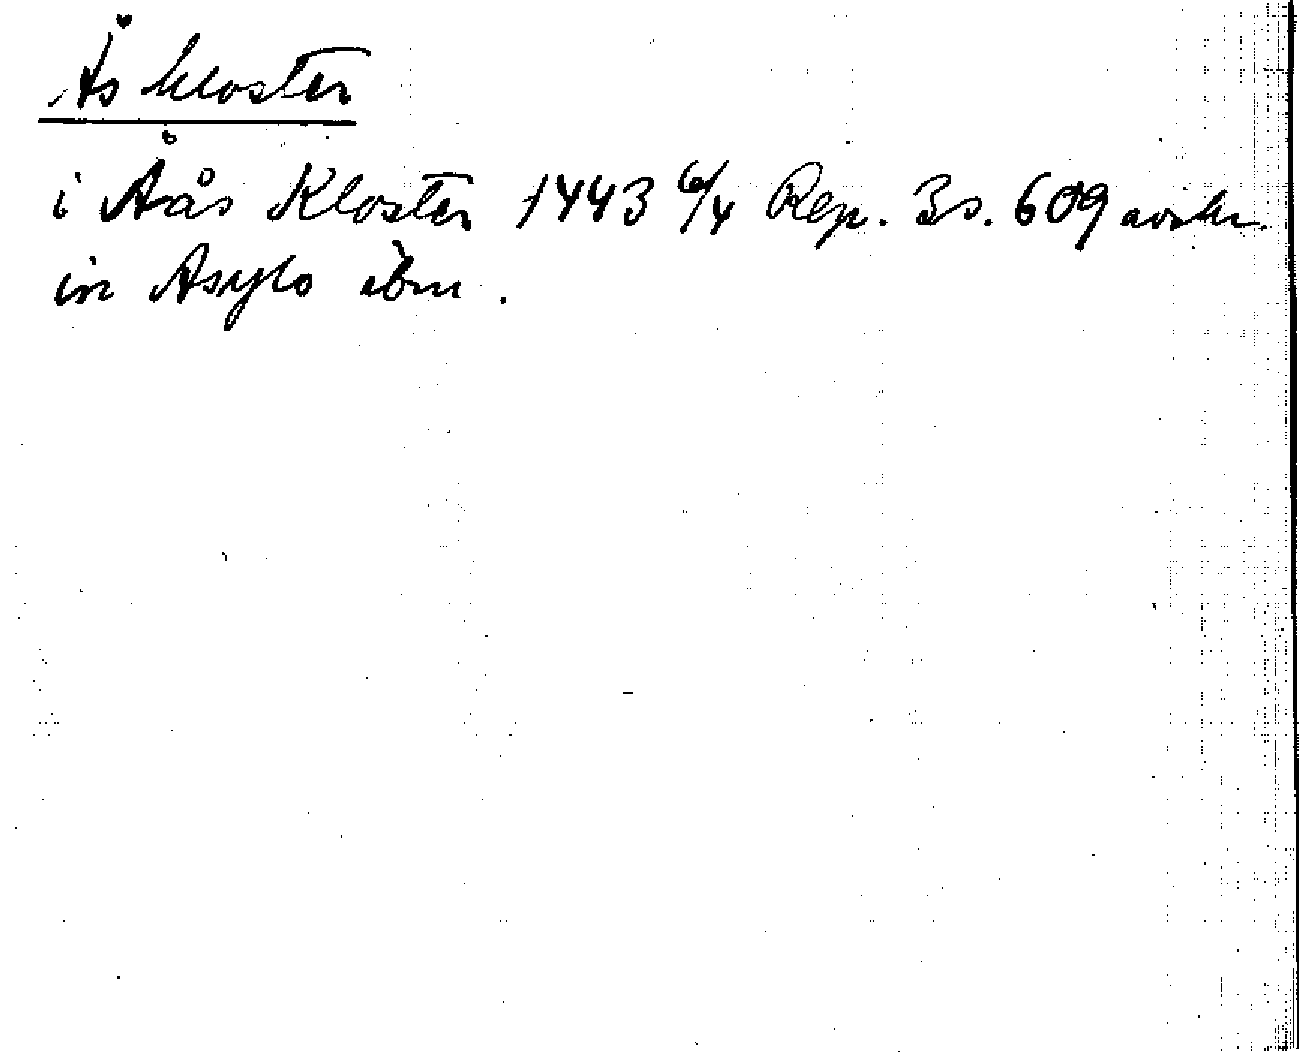 Ås kloster
i Åås Kloster 1443 6/4 Rep. 3 s. 609 avskr.
in Asylo ibm.